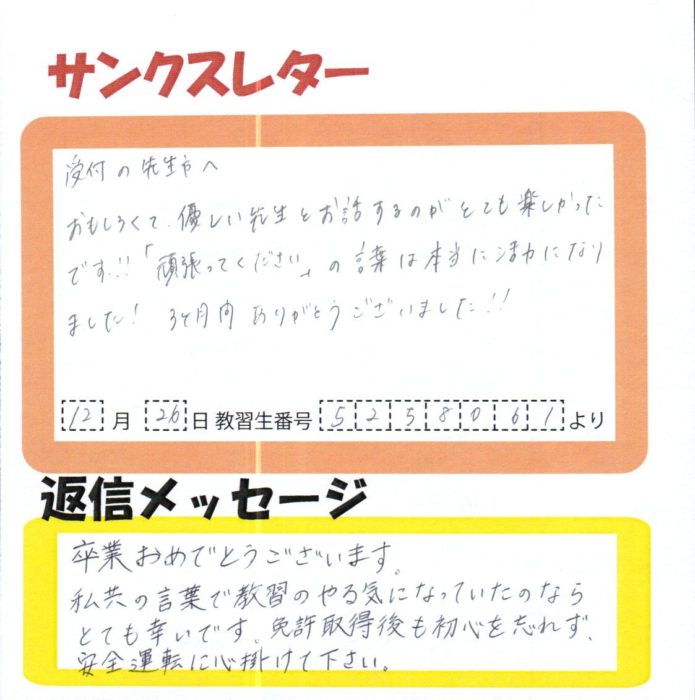 サンクスレター
受付の先生方へ
おもしろくて、優しい先生とお話するのがとても楽しかった
です!!「頑張ってください」の言葉は本当に活力になり
ました! 3ヶ月間ありがとうございました!!
12月26日 教習生番号 5258061より
返信メッセージ
卒業おめでとうございます。
私共の言葉で教習のやる気になっていたのなら
とても幸いです。免許取得後も初心を忘れず、
安全運転に心掛けて下さい。